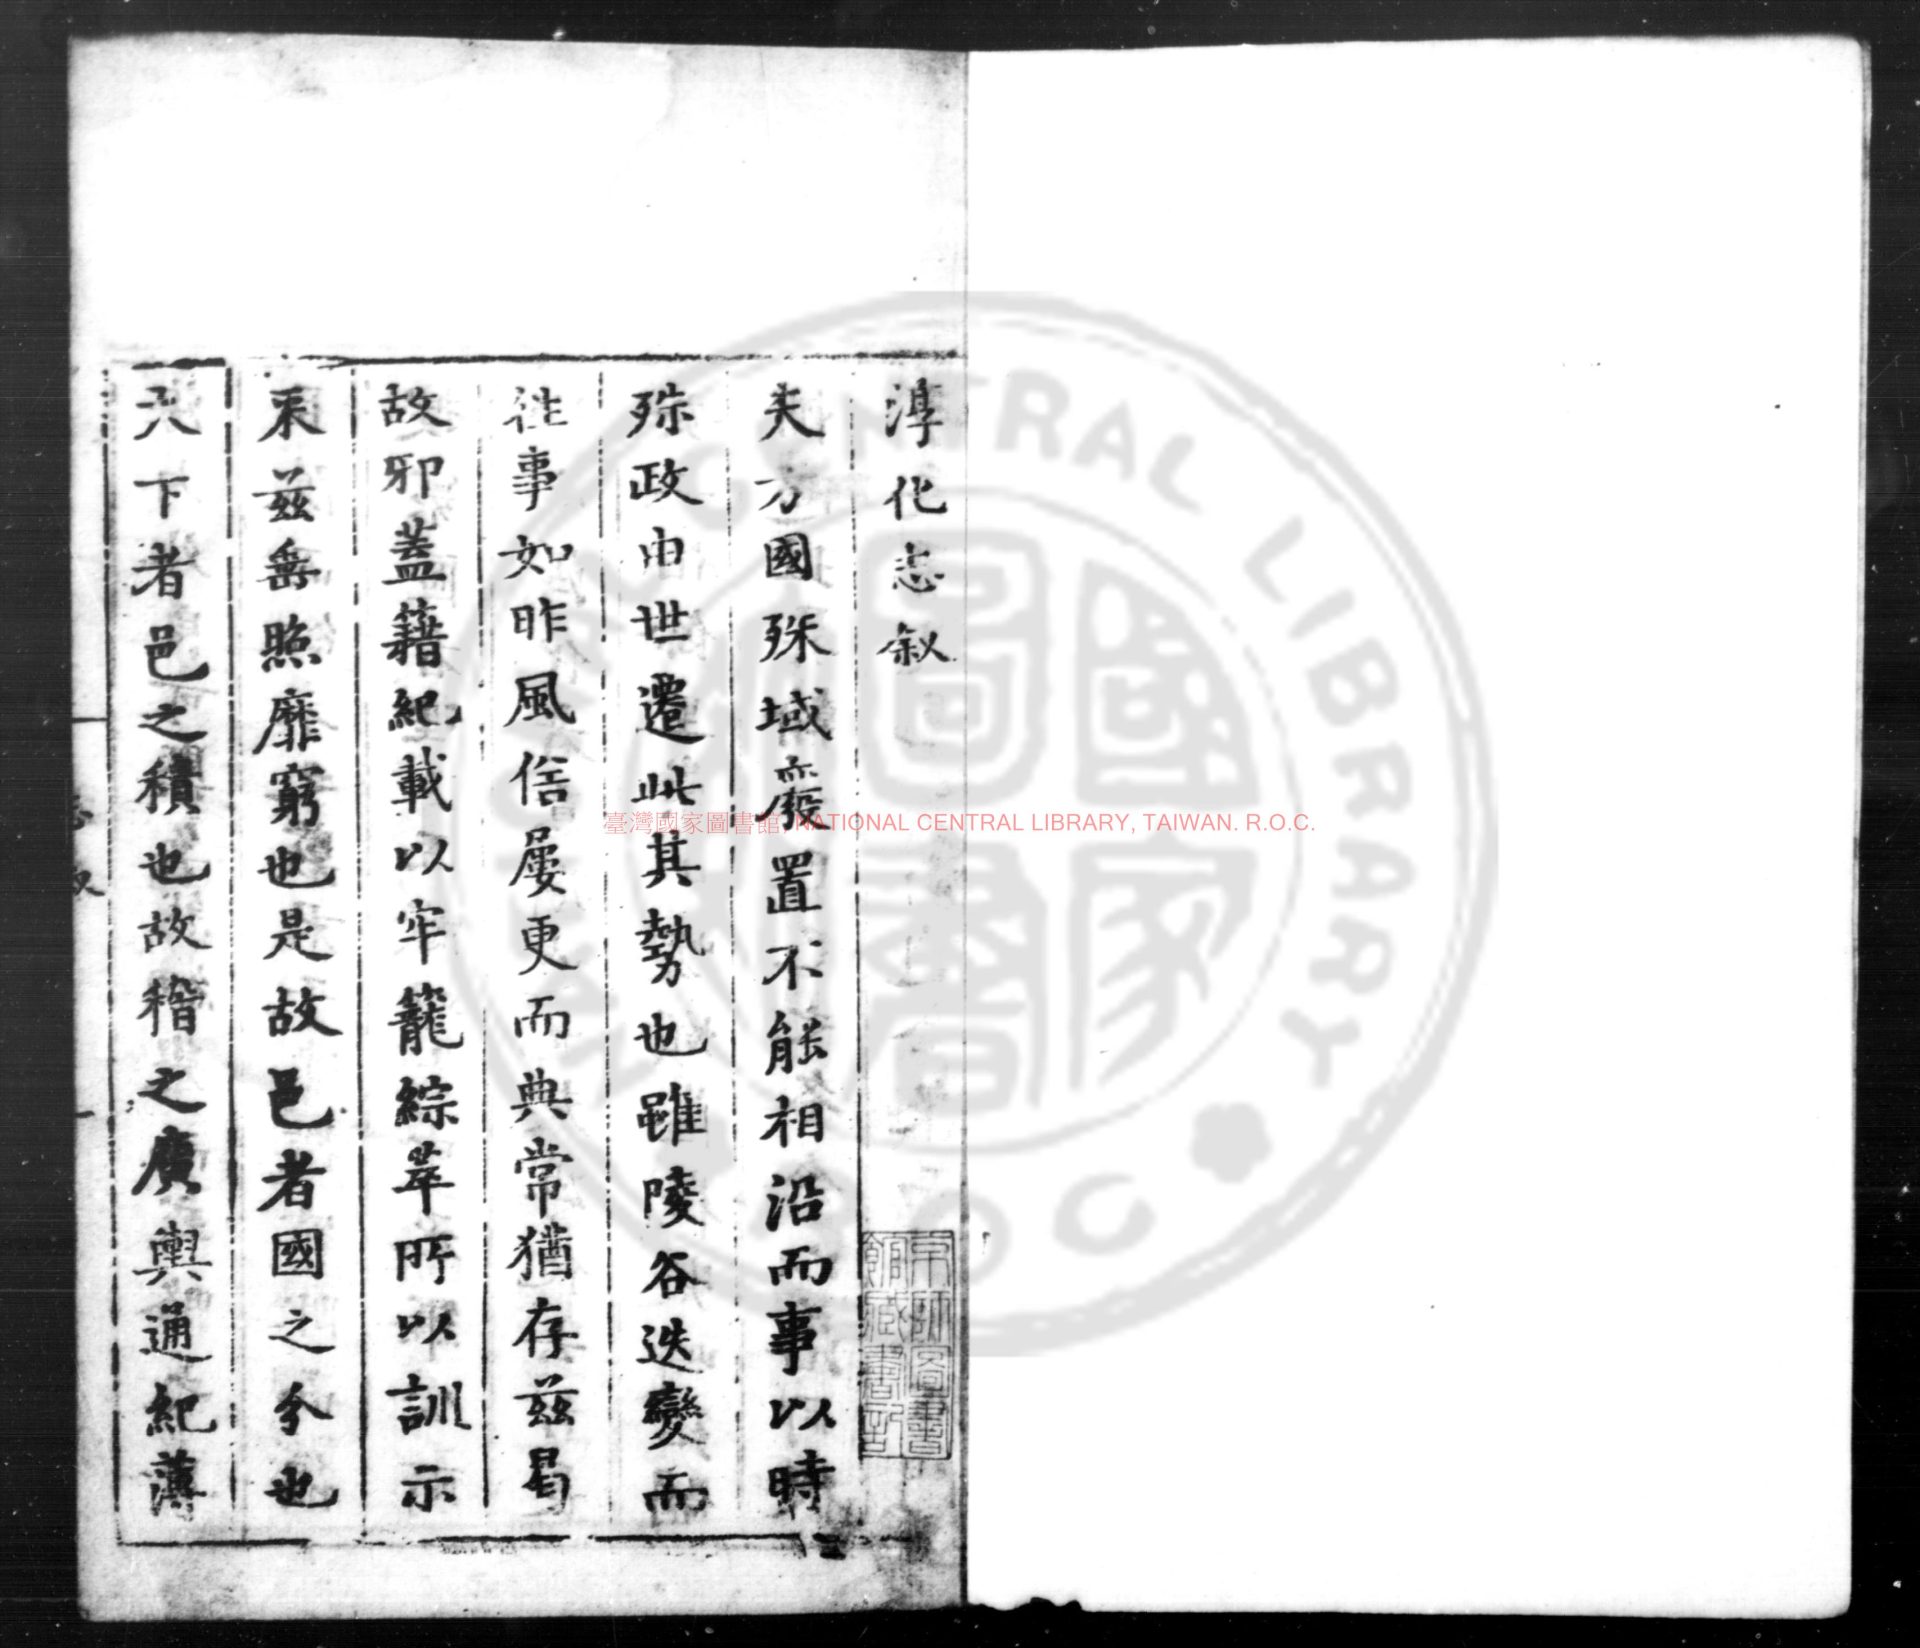 淳化志叙
夫方國殊域廢置不能相沿而事以時
殊政由世遷此其勢也雖陵谷迭變而
往事如昨風俗屡更而典常猶存兹曷
故邪蓋籍紀載以牢籠綜萃所以訓示
来兹垂照靡窮也是故邑者國之分也
天下者邑之積也故稽之廣輿通紀薄
京師圖書館藏書記
臺灣國家圖書館, NATIONAL CENTRAL LIBRARY, TAIWAN. R.O.C.